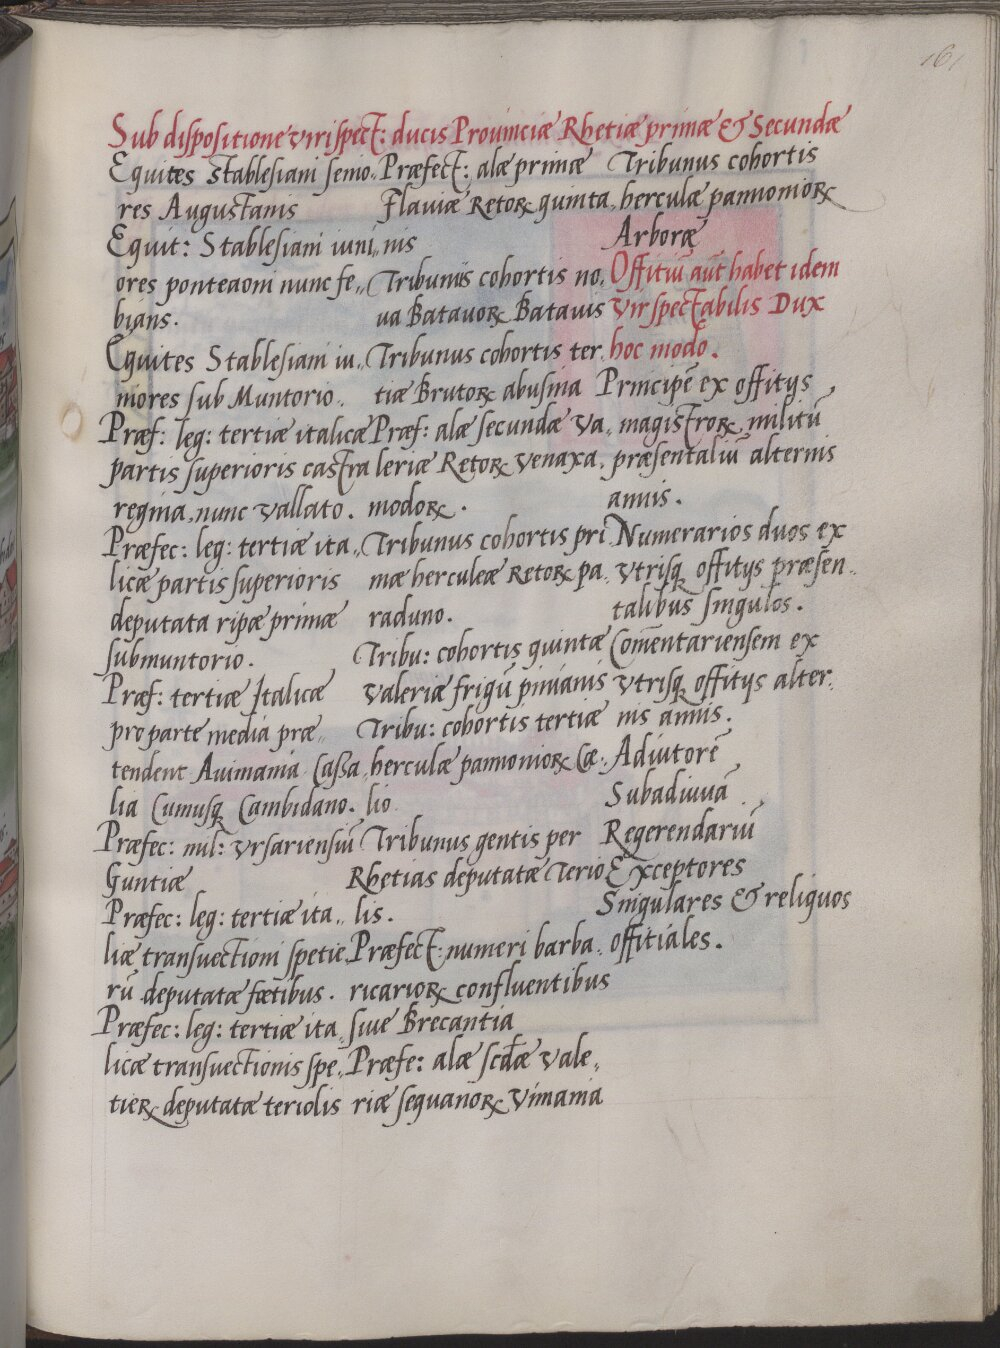 161
Sub dispositione viri spect: ducis Prouinciæ Rhetiæ primæ & Secundæ
Equites stablesiani senio„
res Augustanis
Equit: Stablesiani iuni„
ores ponteaoni nunc fe„
bians.
Equites Stablesiani iu„
niores sub Muntorio.
Præf: leg: tertiæ italicæ
partis superioris castra
regina, nunc vallato.
Præfec: leg: tertiæ ita„
licæ partis superioris
deputata ripæ primæ
submuntorio.
Præf: tertiæ Italicæ
pro parte media præ„
tendent Auimania Cassa„
lia Cumusq Cambidano.
Præfec: mil: vrsariensiū
Guntiæ
Præfec: leg: tertiæ ita„
liæ transuectioni spetie„
rū deputatæ fœtibus.
Præfec: leg: tertiæ ita„
licæ transuectionis spe„
tieꝝ deputatæ teriolis
Præfect: alæ primæ
Flauiæ Retoꝝ quinta„
nis
Tribunus cohortis no„
ua Batauoꝝ Batauis
Tribunus cohortis ter„
tiæ Brutoꝝ abusina
Præf: alæ secundæ Va„
leriæ Retoꝝ venaxa„
modoꝝ.
Tribunus cohortis pri„
mæ herculeæ Retoꝝ pa„
raduno.
Tribu: cohortis quintæ
valeriæ frigū pinianis
Tribu: cohortis tertiæ
herculæ pannonioꝝ Cæ„
lio
Tribunus gentis per
Rhetias deputatæ Terio„
lis.
Præfect: numeri barba„
ricarioꝝ confluentibus
siue Brecantia
Præfe: alæ scdæ vale„
riæ sequanoꝝ vimania
Tribunus cohortis
herculæ pannonioꝝ
Arboræ
Offitiū aūt habet idem
vir spectabilis Dux
hoc modo.
Principē ex offitijs
magistroꝝ militū
præsentaliū alternis
annis.
Numerarios duos ex
vtrisq offitijs præsen„
talibus singulos.
Comentariensem ex
vtrisq offitijs alter„
nis annis.
Adiutorē
Subadiuuā
Regerendariū
Exceptores
Singulares & reliquos
offitiales.